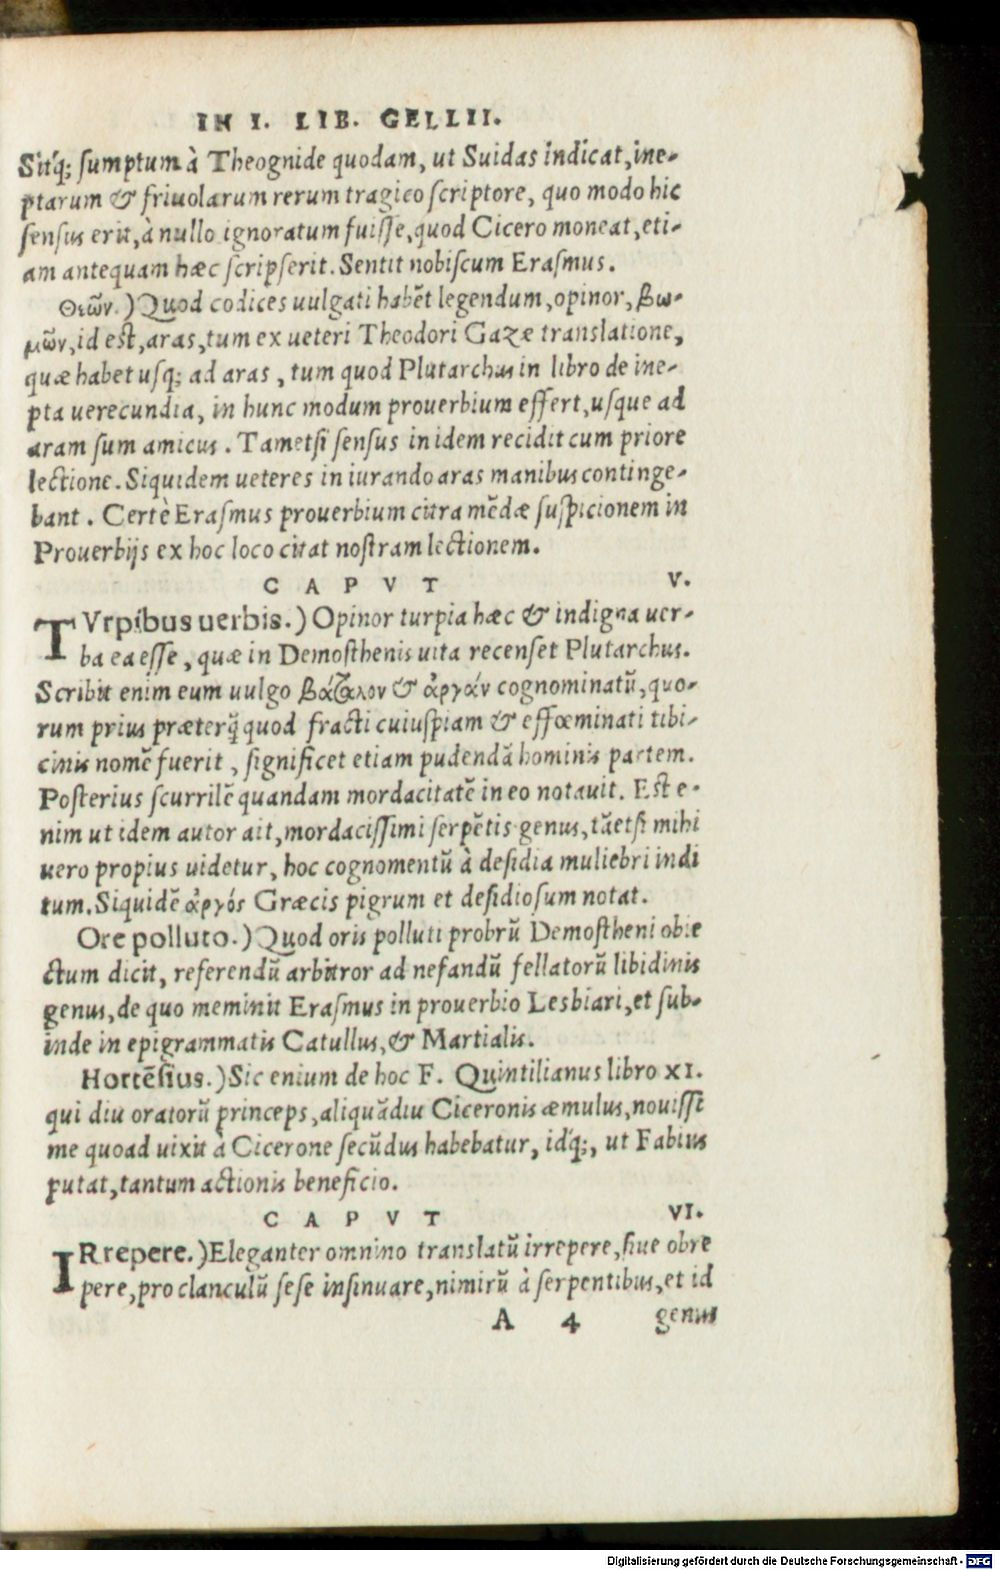 IN I. LIB. GELLII.
Sitq́; sumptum à Theognide quodam, ut Suidas indicat, ine-
ptarum & friuolarum rerum tragico scriptore, quo modo hic
sensus erit, à nullo ignoratum fuisse, quod Cicero moneat, eti-
am antequam hæc scripserit. Sentit nobiscum Erasmus.
Θεῶν.) Quod codices uulgati habēt legendum, opinor, βω-
μῶν, id est, aras, tum ex ueteri Theodori Gazæ translatione,
quæ habet usq; ad aras, tum quod Plutarchus in libro de ine-
pta uerecundia, in hunc modum prouerbium effert, usque ad
aram sum amicus. Tametsi sensus in idem recidit cum priore
lectione. Siquidem ueteres in iurando aras manibus continge-
bant. Certè Erasmus prouerbium citra mēdæ suspicionem in
Prouerbijs ex hoc loco citat nostram lectionem.
CAPVT V.
TVrpibus uerbis.) Opinor turpia hæc & indigna uer-
ba ea esse, quæ in Demosthenis uita recenset Plutarchus.
Scribit enim eum uulgo βάταλον & ἀργάν cognominatū, quo-
rum prius præterq̄ quod fracti cuiuspiam & effœminati tibi-
cinis nomē fuerit, significet etiam pudendā hominis partem.
Posterius scurrilē quandam mordacitatē in eo notauit. Est e-
nim ut idem autor ait, mordacissimi serpētis genus, tāetsi mihi
uero propius uidetur, hoc cognomentū à desidia muliebri indi
tum. Siquidē ἀργός Græcis pigrum et desidiosum notat.
Ore polluto.) Quod oris polluti probrū Demostheni obie
ctum dicit, referendū arbitror ad nefandū fellatorū libidinis
genus, de quo meminit Erasmus in prouerbio Lesbiari, et sub-
inde in epigrammatis Catullus, & Martialis.
Hortēsius.) Sic enium de hoc F. Quintilianus libro XI.
qui diu oratorū princeps, aliquādiu Ciceronis æmulus, nouissi
me quoad uixit à Cicerone secūdus habebatur, idq́;, ut Fabius
putat, tantum actionis beneficio.
CAPVT VI.
IRrepere.) Eleganter omnino translatū irrepere, siue obre
pere, pro clanculū sese insinuare, nimirū à serpentibus, et id
A 4 genus
Digitalisierung gefördert durch die Deutsche Forschungsgemeinschaft - DFG